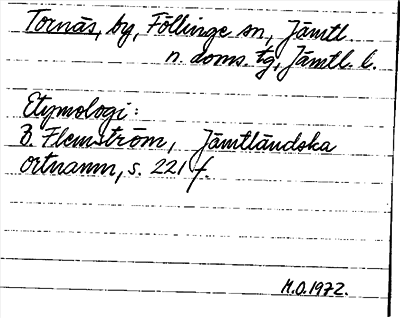 Tornäs, by, Föllinge sn, Jämtl.
n. doms. tg, Jämtl. l.
Etymologi:
B. Flemström, Jämtländska
ortnamn, s. 221 f.
M.O.1972.